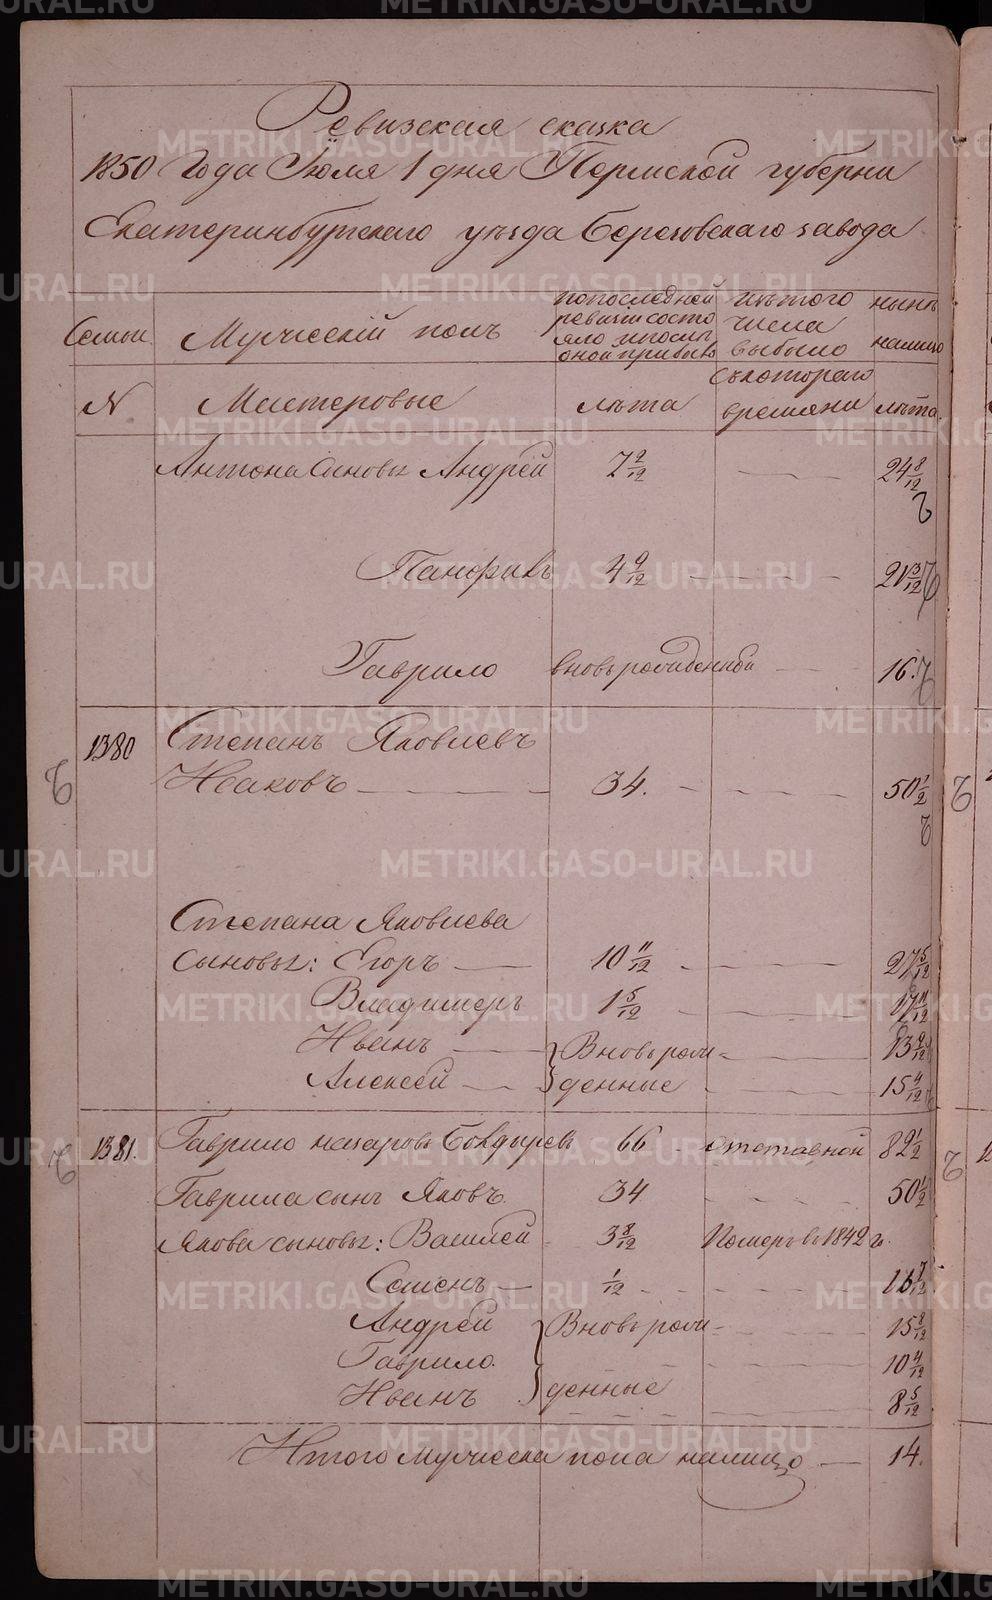 Ревизская сказка
1850 Года Іюля 1 дня Пермской губерни
Екатеринбургскаго уезда Березовскаго завода
Семьи Мужескій полъ попоследней ревизіи состояло ипослы оной прибыло изътого числа выбыло ныне налицо
N Мастеровые лета съкотораго времяни лета
Антона Сыновы Андрей 7 2/12 24 8/12
Панфилъ 4 9/12 21 3/12
Гаврило вновьрожденный 16.
1380 Степанъ Яковлевъ
Исаковъ 34. 50 1/2
Степана Яковлева
сыновы: Егоръ 10 11/12 27 5/12
Владимеръ 1 5/12 17 11/12
Иванъ Вновьрож- 13 9/12
Алексей денные 15 4/12
1381. Гаврило назаровъ Болдыревъ 66 отставной 82 1/2
Гаврила сынъ Яковъ 34 50 1/2
Якова сыновы: Василей 3 8/12 Померъ в 1842 г.
Семенъ 1/12 16 7/12
Андрей Вновьрож- 15 8/12
Гаврило 10 4/12
Иванъ денные 8 5/12
Итого мужеска пола налицо 14.
METRIKI.GASO-URAL.RU